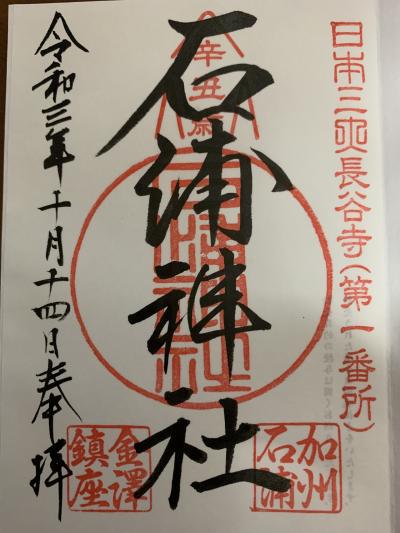 日本三大長谷寺(第一番所)
辛丑歳
石浦神社
石浦神社
加州
石浦
令和三年十月十四日奉拝
金澤
鎮座